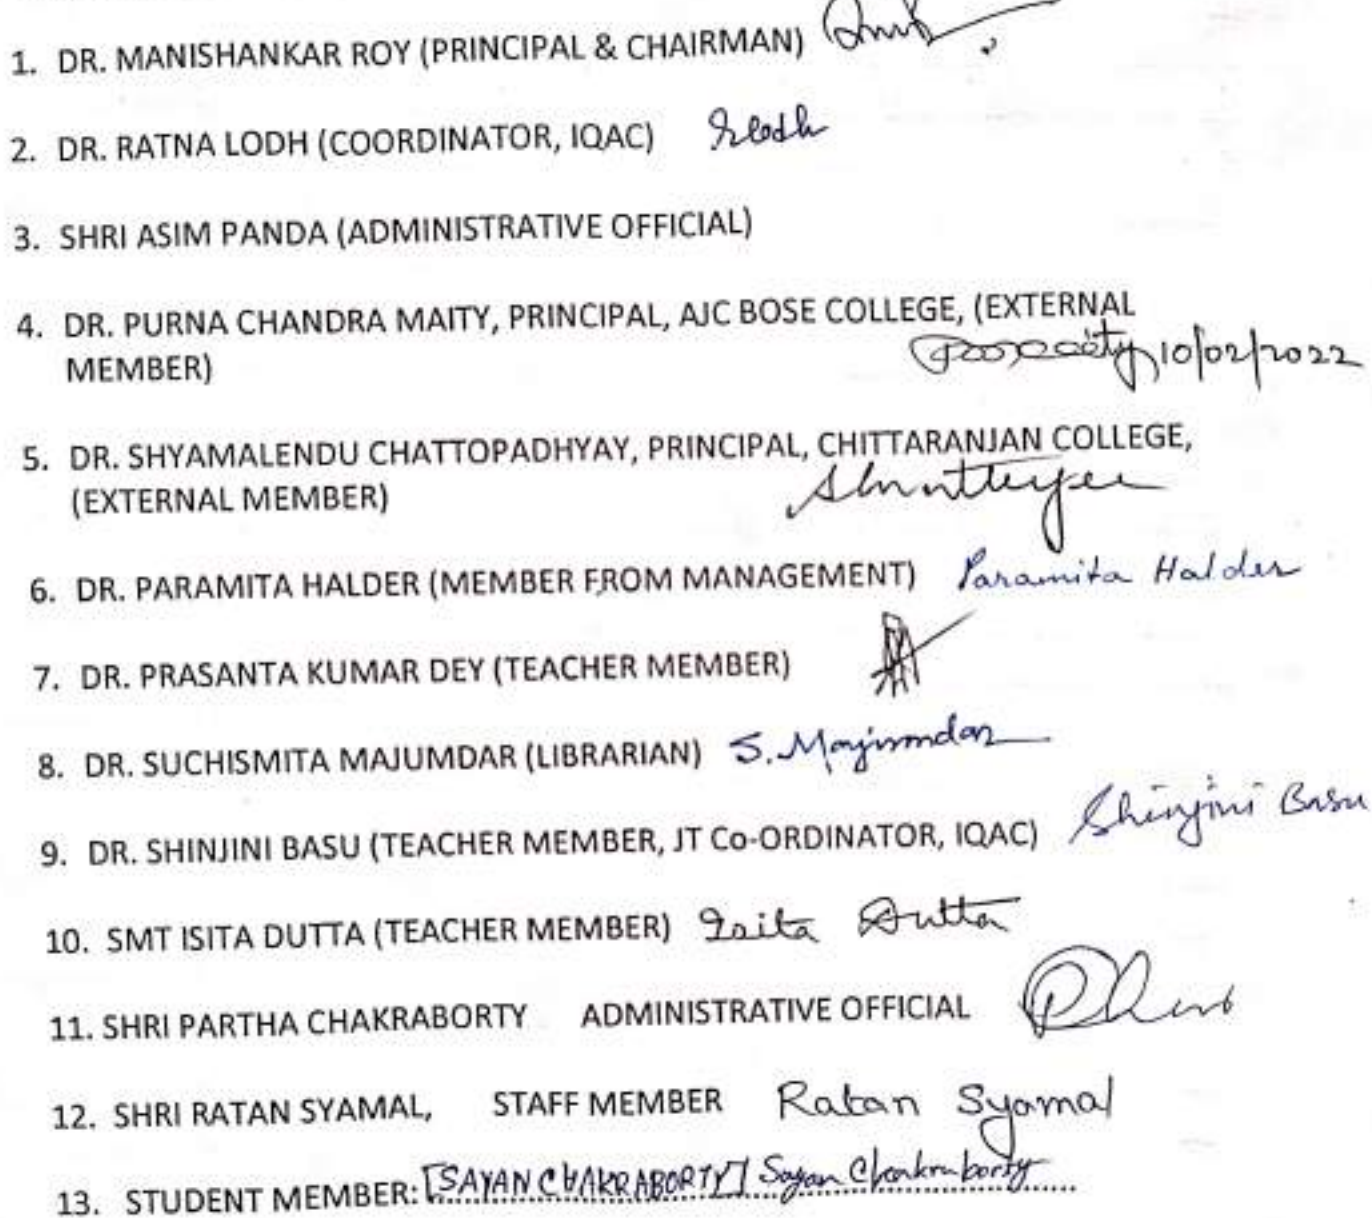 1. DR. MANISHANKAR ROY (PRINCIPAL & CHAIRMAN)
2. DR. RATNA LODH (COORDINATOR, IQAC) Rlodh
3. SHRI ASIM PANDA (ADMINISTRATIVE OFFICIAL)
4. DR. PURNA CHANDRA MAITY, PRINCIPAL, AJC BOSE COLLEGE, (EXTERNAL
MEMBER) 10/02/2022
5. DR. SHYAMALENDU CHATTOPADHYAY, PRINCIPAL, CHITTARANJAN COLLEGE,
(EXTERNAL MEMBER)
6. DR. PARAMITA HALDER (MEMBER FROM MANAGEMENT) Paramita Halder
7. DR. PRASANTA KUMAR DEY (TEACHER MEMBER)
8. DR. SUCHISMITA MAJUMDAR (LIBRARIAN) S. Majumdar
9. DR. SHINJINI BASU (TEACHER MEMBER, JT Co-ORDINATOR, IQAC) Shinjini Basu
10. SMT ISITA DUTTA (TEACHER MEMBER) Isita Dutta
11. SHRI PARTHA CHAKRABORTY ADMINISTRATIVE OFFICIAL
12. SHRI RATAN SYAMAL, STAFF MEMBER Ratan Syamal
13. STUDENT MEMBER: [SAYAN CHAKRABORTY] Sayan Chakraborty